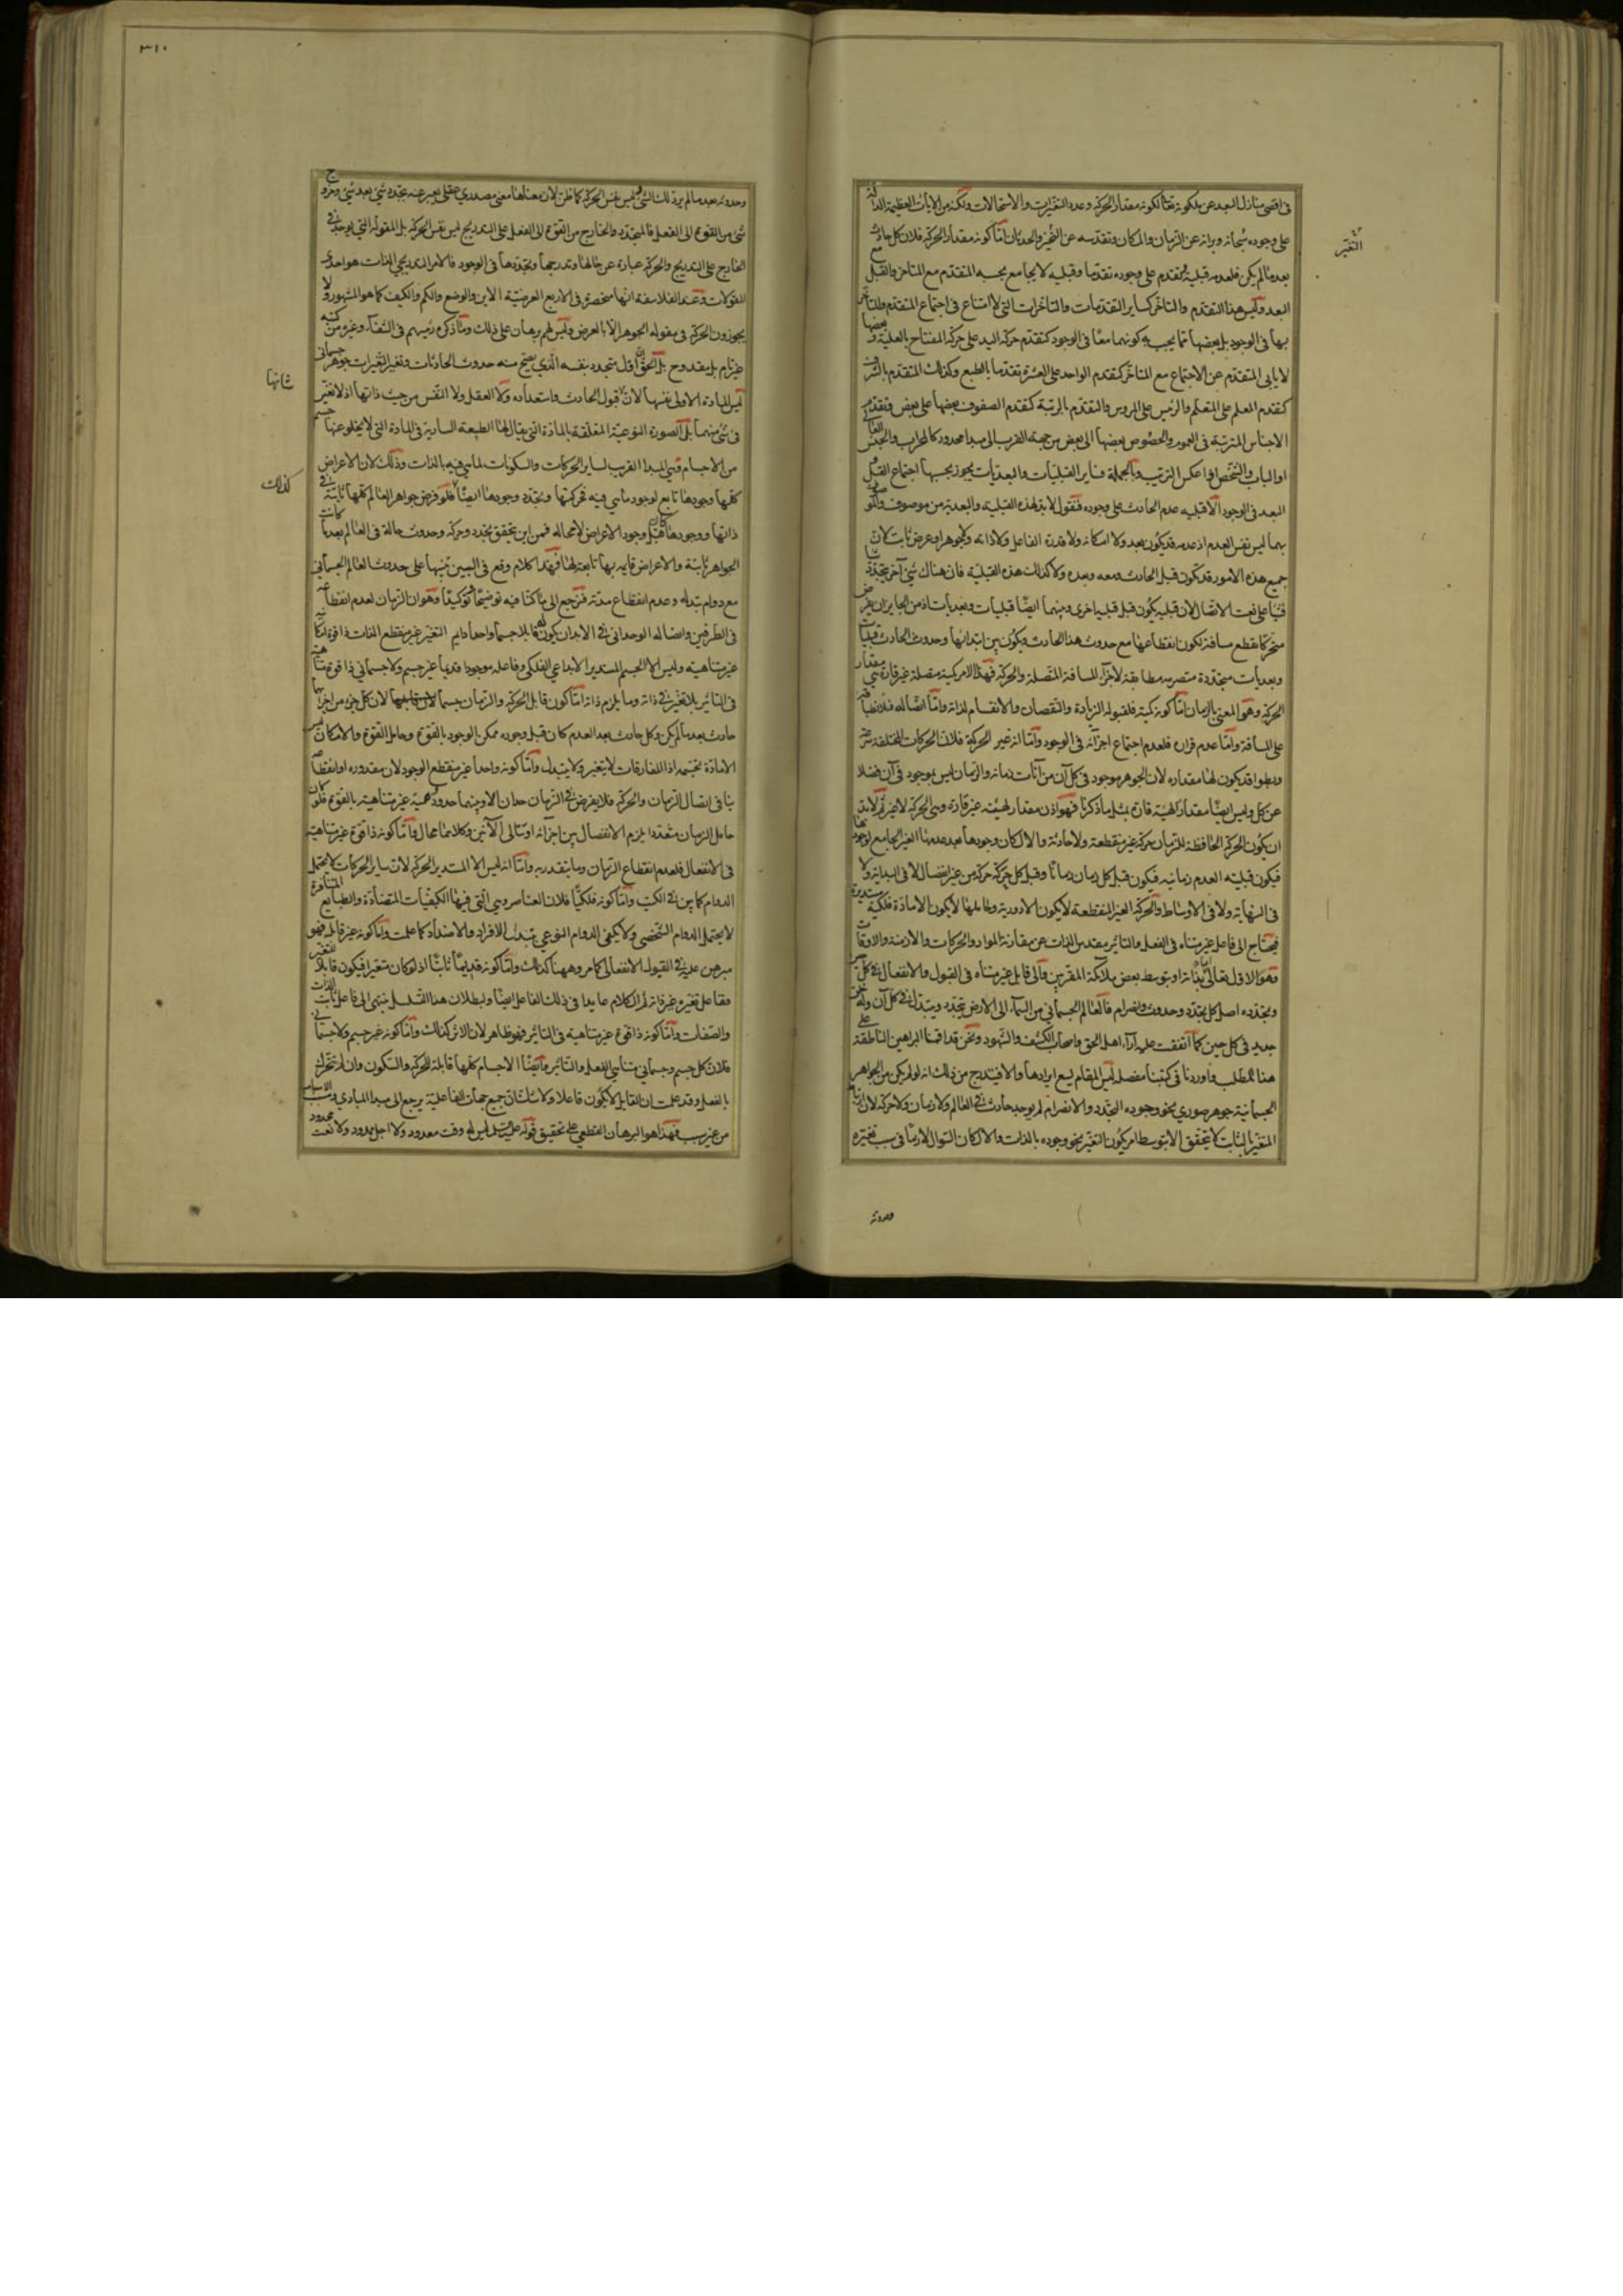 في اقصى منازل البعد عن ملكوته تعالى لكونه مقدار الحركة وعدد التغيرات والاستحالات ولكنه من الآيات العظيمة الدالة
على وجوده سبحانه وبراءته عن الزمان والمكان وتقدسه عن التغير والحدثان اما كونه مقدار الحركة فلان كل حادث
بعد ما لم يكن فلعدمه قبلية وتقدم على وجوده تقدما وقبلية لا يجامع بحسبه المتقدم مع المتاخر والقبل مع
البعد وليس هذا التقدم والتاخر كساير التقدمات والتاخرات التي لا امتناع في اجتماع المتقدم والمتاخر
بها في الوجود بل بعضها مما يجب به كونهما معا في الوجود كتقدم حركة اليد على حركة المفتاح بالعلية وبعضها
لا يابى المتقدم عن الاجتماع مع المتاخر كتقدم الواحد على العشرة تقدما بالطبع وكذلك المتقدم بالشرف
كتقدم المعلم على المتعلم والرئيس على المرؤس والمتقدم بالرتبة كتقدم الصفوف بعضها على بعض وتقدم
الاجناس المترتبة في العموم والخصوص بعضها الى بعض من جهة القرب الى مبدا محدود كالمحراب والجنس العالي
او الباب والشخص اذا عكس الترتيب وبالجملة فساير القبليات والبعديات يجوز بحسبها اجتماع القبل مع
البعد في الوجود الا قبلية عدم الحادث على وجوده فنقول لابد لهذه القبلية والبعدية من موصوف والموصوف
بهما ليس نفس العدم اذ عدمه قد يكون بعد ولا امكانه ولا قدرة الفاعل ولا ذاته ولا جوهر او عرض ثابت لان
جميع هذه الامور قد تكون قبل الحادث ومعه وبعده ولا كذلك هذه القبلية فان هناك شيئ آخر يتجدد شيئا
فشيئا على نعت الاتصال لان قبليه يكون قبل قبليه اخرى وبينهما ايضا قبليات وبعديات اذ من الجايز ان يفرض
متحركا يقطع مسافة تكون انقطاعها مع حدوث هذا الحادث ويكون بين ابتدائها وحدوث الحادث قبليات
وبعديات متجددة متصرمة مطابقة لاجزاء المسافة المتصلة والحركة فهذا الامر كمية متصلة غير قارة هي مقدار
الحركة وهو المعني بالزمان اما كونه كمية فلقبوله الزيادة والنقصان والانقسام لذاته واما اتصاله فلانطباقه
على المسافة واما عدم قراره فلعدم اجتماع اجزائه في الوجود واما انه غير الحركة فلان الحركات المختلفة سرعة
وبطوا قد يكون لها مقداره لان الجوهر موجود في كل آن من آنات زمانه والزمان ليس بموجود في آن فضلا
عن كل وليس ايضا مقدارا لهيئة قارة بمثل ما ذكرنا فهو اذن مقدار لهيئة غير قارة وهي الحركة لا غير ثم لابد
ان يكون الحركة الحافظة للزمان حركة غير منقطعة ولا حادثة والا لكان وجودها بعد عدمها الغير الجامع لوجودها
فيكون قبلية العدم زمانيه فيكون قبل كل زمان زمانا وقبل كل حركة حركة من غير انفصال لا في البداية ولا
في النهاية ولا في الاوساط والحركة الغير المنقطعة لا يكون الا دورية وحاملها لا يكون الا مادة فلكية مستديرة
فيحتاج الى فاعل غير متناه في الفعل والتاثير مقدس الذات عن مقارنة المواد والحركات والازمنة والاوقات
وهو الاول تعالى بذاته او بتوسط بعض ملائكته المقربين والى قابل غير متناه في القبول والانفعال في كل حين
وتجدده اصل كل تجدد وحدوث وانصرام فالعالم الجسماني من السماء الى الارض يتجدد ويتبدل في كل آن وله خلق
جديد في كل حين كما اتفقت عليه آراء اهل الحق واصحاب الكشف والشهود ونحن قد اقمنا البراهين الناطقة على
هذا المطلب واوردنا في كتبنا مفصلة ليس المقام يسع ايرادها والا فيتدرج من ذلك انه لو لم يكن من الجواهر
الجسمانية جوهر صوري نحو وجوده التجدد والانصرام لم يوجد حادث في العالم ولا زمان ولا حركة لان ارتباط
المتغير بالثابت لا يتحقق الا بتوسط امر يكون التغير نحو وجوده بالذات والا لكان السؤال لازما في سبب تغيره
وحدوثه
التغير
٣١٠
وحدوثه بعد ما لم يرد ذلك الشئ وليس نفس الحركة كما ظن لان معناها معنى مصدري عقلي يعبر عنه بتجدد شئ بعد شئ وخروج
شئ من القوة الى الفعل فالمتجدد والخارج من القوة الى الفعل على التدريج ليس نفس الحركة بل المقولة التي يوجد في
الخارج على التدريج والحركة عبارة عن حالها وتدرجها وتجددها في الوجود فالامر التدريجي الذات هو احدى
المقولات وعند الفلاسفة انها منحصرة في الاربع العرضية الاين والوضع والكم والكيف كما هو المشهور ولا
يجوزون الحركة في مقولة الجوهر الا بالعرض وليس لهم برهان على ذلك وما ذكره رئيسهم في الشفاء وغيره من كتبه
غير تام بل مقدوح بل الحق ان اول متجدد بنفسه الذي يصح منه حدوث الحادثات وتغير المتغيرات جوهر جسماني
ليس المادة الاولى نفسها لان قبول الحادث واستعداده ولا العقل ولا النفس من حيث ذاتها اذ لا تغير
في شئ منهما بل الصورة النوعية المتعلقة بالمادة التي يقال لها الطبيعة السارية في المادة التي لا يخلو عنها جسم
من الاجسام فهي المبدا القريب لساير الحركات والسكونات لما هي فيه بالذات وذلك لان الاعراض
كلها وجودها تابع لوجود ما هي فيه فحركتها وتجدد وجودها ايضا فلو فرض جواهر العالم كلها ثابتة في
ذاتها ووجودها قبل وجود الاعراض لا محالة فمن اين يتحقق تجدد وحركة وحدوث حالة في العالم بعد ما كانت
الجواهر ثابتة والاعراض قايمة بها تابعة لها فهذا كلام وقع في البين تنبيها على حدوث العالم الجسماني
مع دوام تبدله وعدم انقطاع مدته فنرجع الى ما كنا فيه توضيحا وتوكيدا وهو ان الزمان لعدم انقطاعه
في الطرفين واتصاله الوحداني في الابدان يكون له قابلا جسما واحدا دايم التغير غير منقطع الذات ذا قوة انفعالية
غير متناهية وليس الا الجسم المستدير الابداعي الفلكي وفاعله موجودا قديما غير جسم ولا جسماني ذا قوة غير متناهية
في التاثير بلا تغير في ذاته وما يلزم ذاته اما كون قابل الحركة والزمان جسما لان كل جزء من اجزائها
حادث بعد ما لم يكن وكل حادث بعد العدم كان قبل وجوده ممكن الوجود بالقوة وحامل القوة والامكان ليس
الا مادة جسمية اذ المفارقات لا يتغير ولا يتبدل واما كونه واحدا غير منقطع الوجود لان مقدوره او انقطاعه
ينافي اتصال الزمان والحركة فلا يفرض في الزمان حدان الا وبينهما حدود وهمية غير متناهية بالقوة فلو كان
حامل الزمان متعددا يلزم الانفصال بين اجزائه او تتالى الآنين وكلاهما محال واما كونه ذا قوة غير متناهية
في الانفعال فلعدم انقطاع الزمان وما يتقدر به واما انه ليس الا المستدير الحركة لان ساير الحركات لا يحتمل
الدوام كما بين في الكتب واما كونه فلكيا فلان العناصر وهي التي فيها الكيفيات المتضادة والطبايع المتنافرة
لا يحتمل الدوام الشخصي ولا يكفي الدوام النوعي بتبدل الافراد والامداد كما علمت واما كونه غير قابل له فهو
مبرهن عليه في القبول الانفعالي كما مر وههنا كذلك واما كونه قديما ثابتا اذ لو كان متغيرا فيكون قابلا للتغير
وفاعل تغيره غير ذاته ثم الكلام عايدا في ذلك الفاعل ايضا ولبطلان هذا التسلسل ينتهي الى فاعل ثابت الذات
والصفات واما كونه ذا قوة غير متناهية في التاثير فهو ظاهر لان الاثر كذلك واما كونه غير جسم ولا جسماني
فلان كل جسم وجسماني متناهي الفعل والتاثير وايضا الاجسام كلها قابلة للحركة والسكون وان لم تتحرك
بالفعل وقد علمت ان القابل لا يكون فاعلا ولا شك ان جميع جهات الفاعلية يرجع الى مبدا المبادي ومسبب الاسباب
من غير سبب فهذا هو البرهان القطعي على تحقيق قوله عليه السلام ليس له وقت معدود ولا اجل ممدود ولا نعت محدود
شانها
كذلك